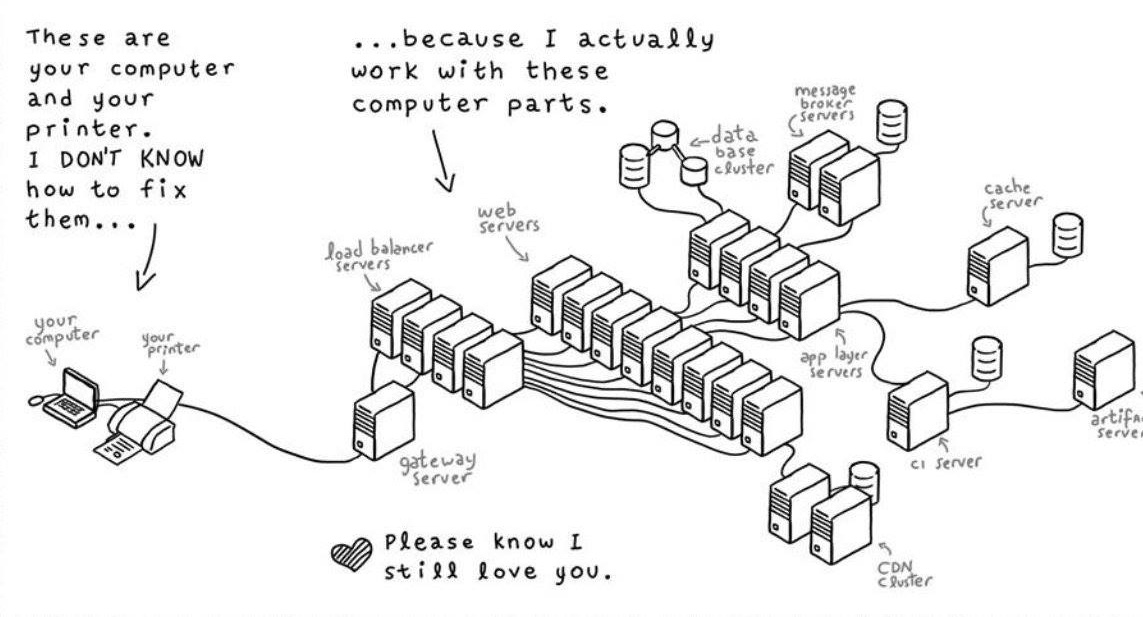 These are
your computer
and your
printer.
I DON'T KNOW
how to fix
them...
...because I actually
work with these
computer parts.
your
computer
your
printer
load balancer
servers
web
servers
data
base
cluster
message
broker
servers
cache
server
app layer
servers
gateway
server
ci server
artifa
server
CDN
cluster
Please know I
still love you.